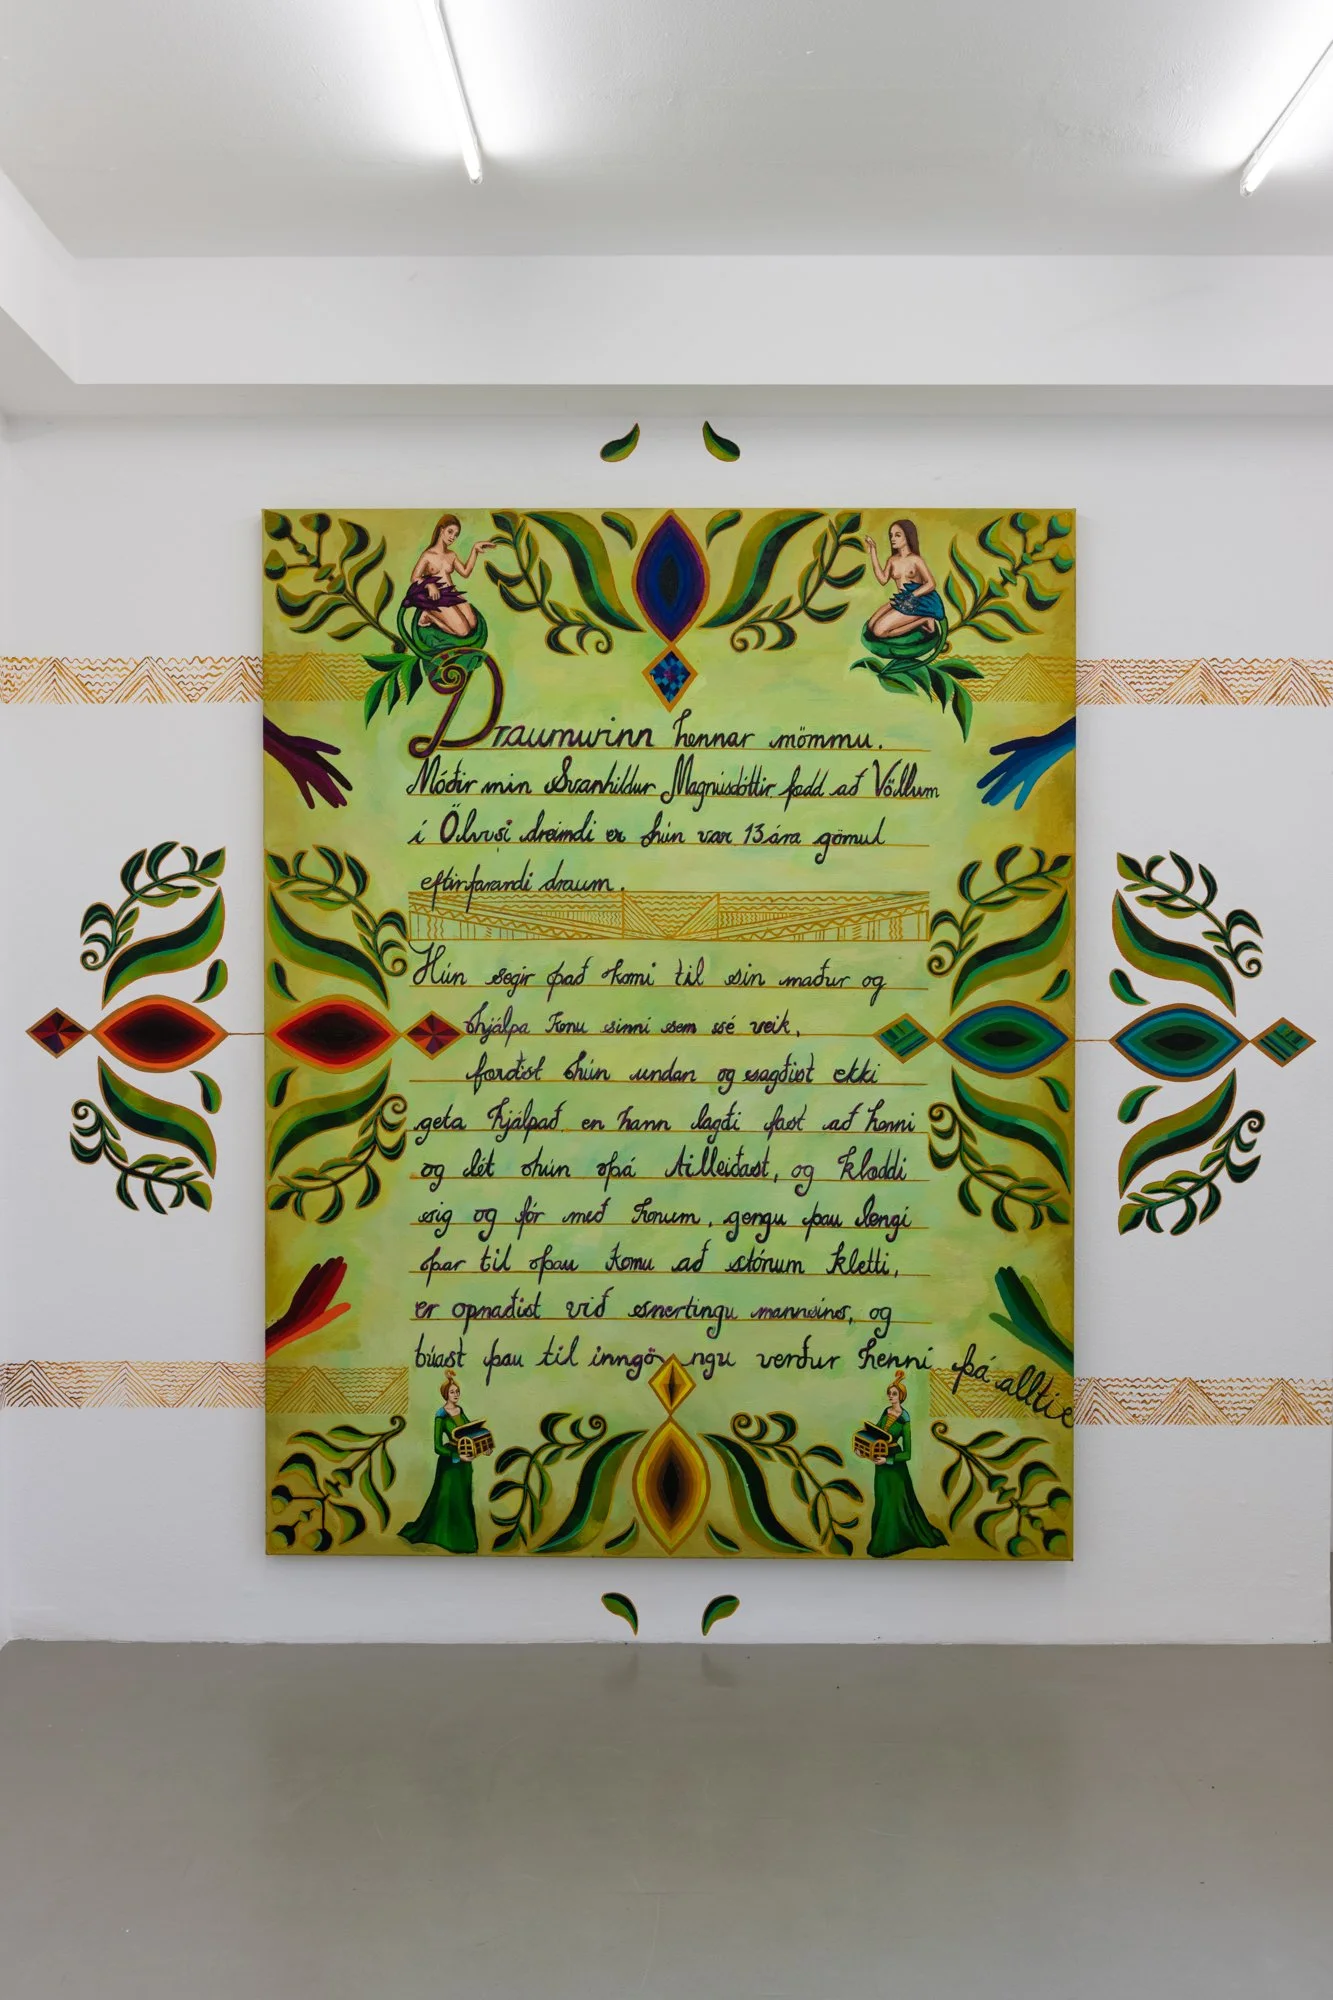 Draumurinn hennar mömmu.
Móðir mín Svanhildur Magnúsdóttir fædd að Völlum
í Ölvusi dreimdi er hún var 13 ára gömul
eftirfarandi draum.
Hún segir það komi til sín maður og
hjálpa konu sinni sem sé veik,
forðist hún undan og sagðist ekki
geta hjálpað en hann lagði fast að henni
og lét hún þá tilleiðast, og klæddi
sig og fór með honum, gengu þau lengi
þar til þau komu að stórum kletti,
er opnaðist við snertingu mannsins, og
búast þau til inngöngu verður henni þá allt í e